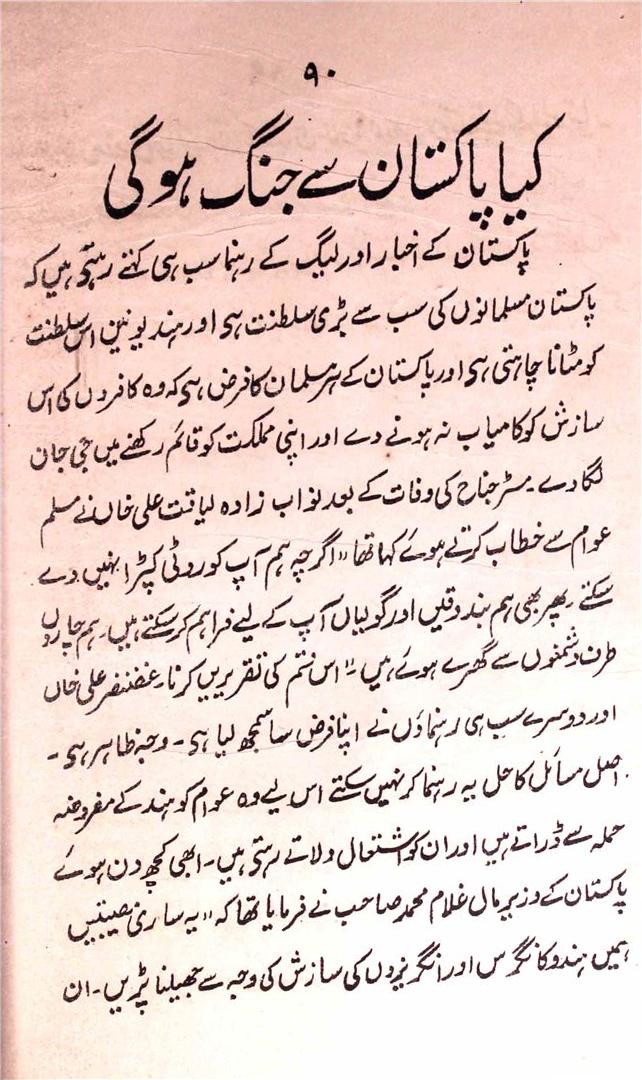 ۹۰
کیا پاکستان سے جنگ ہوگی
پاکستان کے اخبار اور لیگ کے رہنما سب ہی کہتے رہتی ہیں کہ
پاکستان مسلمانوں کی سب سے بڑی سلطنت ہی اور ہند یونین اس سلطنت
کو مٹانا چاہتی ہی اور پاکستان کے ہر مسلمان کا فرض ہی کہ وہ کافروں کی اس
سازش کو کامیاب نہ ہونے دے اور اپنی مملکت کو قائم رکھنے میں جی جان
لگا دے۔ مسٹر جناح کی وفات کے بعد نواب زادہ لیاقت علی خاں نے مسلم
عوام سے خطاب کرتے ہوئے کہا تھا "اگرچہ ہم آپ کو روٹی کپڑا نہیں دے
سکتے۔ پھر بھی ہم بندوقیں اور گولیاں آپ کے لیے فراہم کر سکتے ہیں۔ ہم چاروں
طرف دشمنوں سے گھرے ہوئے ہیں۔" اس قسم کی تقریریں کرنا۔ غضنفر علی خاں
اور دوسرے سب ہی رہنماؤں نے اپنا فرض سا سمجھ لیا ہی۔ وجہ ظاہر ہی۔
اصل مسائل کا حل یہ رہنما کر نہیں سکتے اس لیے وہ عوام کو ہند کے مفروضہ
حملہ سے ڈراتے ہیں اور ان کو اشتعال دلاتے رہتی ہیں۔ ابھی کچھ دن ہوئے
پاکستان کے وزیر مال غلام محمد صاحب نے فرمایا تھا کہ "یہ ساری مصیبتیں
ہمیں ہندو کانگرس اور انگریزوں کی سازش کی وجہ سے جھیلنا پڑیں۔ ان